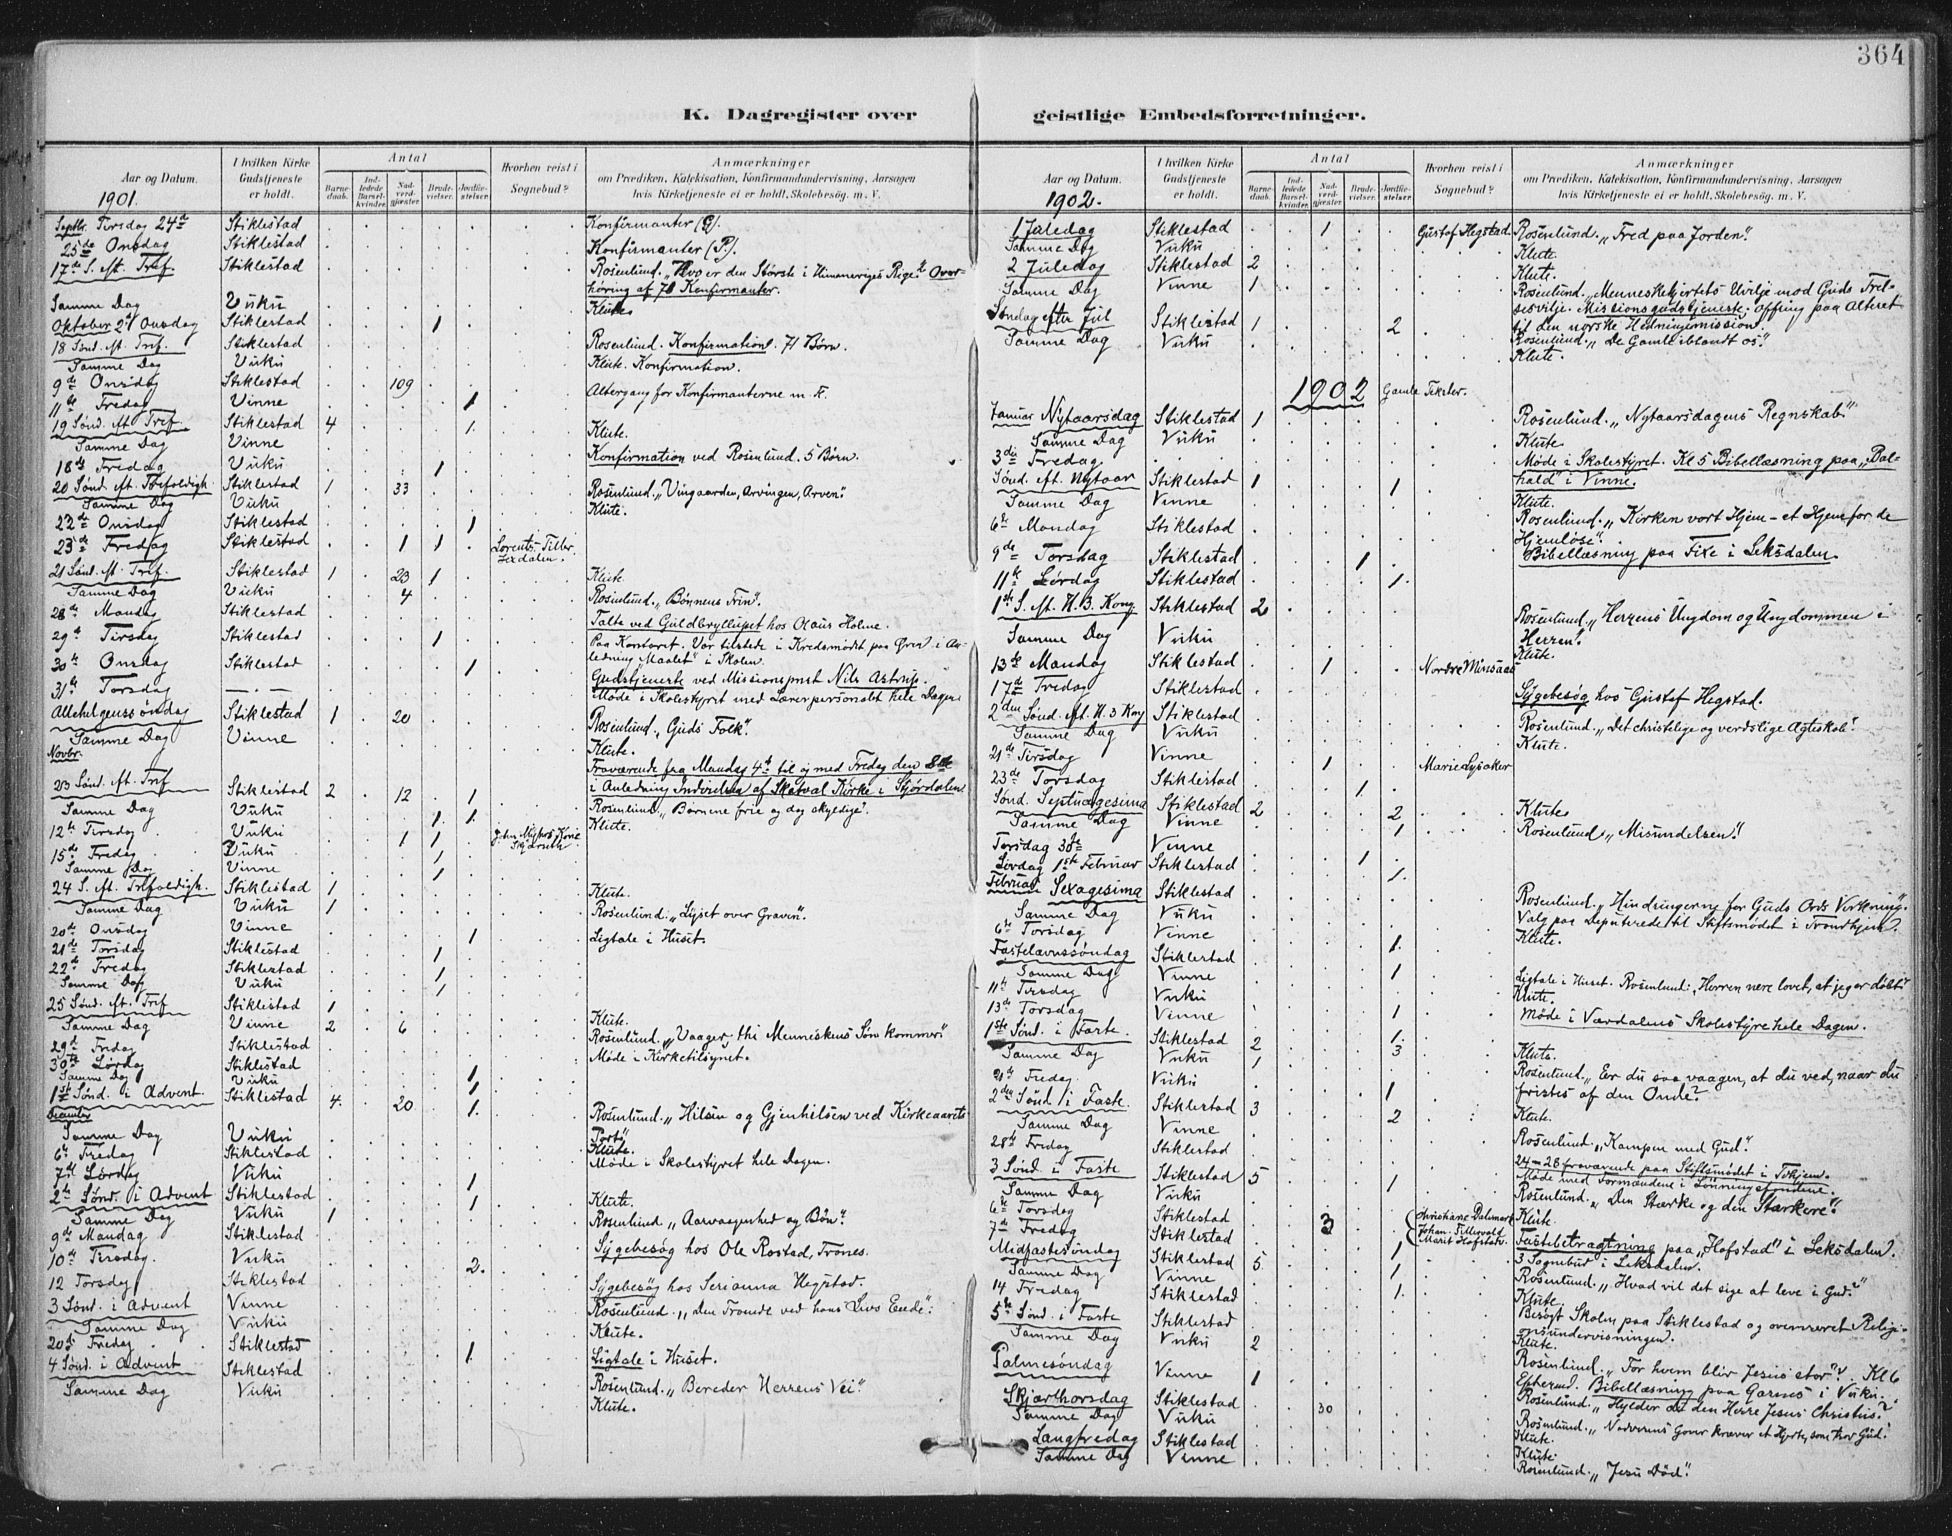 364
K. Dagregister over geistlige Embedsforretninger.
Aar og Datum.
I hvilken Kirke Gudstjeneste er holdt.
Antal
Barnedaab.
Indledede Barselkvinder.
Nadverdgjæster.
Brudevielser.
Jordfæstelser.
Hvorhen reist i Sognebud?
Anmærkninger
om Prædiken, Katekisation, Konfirmandundervisning, Aarsagen
hvis Kirketjeneste ei er holdt, Skolebesøg, m. V.
1901.
Septbr. Tirsdag 24de Stiklestad Konfirmanter (G).
25de Onsdag Stiklestad Konfirmanter (P).
17de S. eft. Tref. Stiklestad Rosenlund. „Hvo er den Største i Himmeriges Rige?" Over-
høring af 71 Konfirmanter.
Samme Dag Vuku Klute
Oktober 2de Onsdag Stiklestad 1
18 Sønd. eft. Tref. Stiklestad Rosenlund. Konfirmation. 71 Børn.
Samme Dag Vuku Klute. Konfirmation.
9de Onsdag Stiklestad 109 Altergang for Konfirmanterne m. F.
11te Fredag Vinne 1
19 Sønd. eft. Tref. Stiklestad 4 1 Klute.
Samme Dag Vinne Konfirmation ved Rosenlund. 5 Børn.
18de Fredag Vuku 1
20 Sønd. eft. Trefoldigh. Stiklestad 1 33 Rosenlund. „Vingaarden, Arvingen, Arven".
Samme Dag Vuku Klute.
22de Onsdag Stiklestad 1
23de Fredag Stiklestad 1 1 Lorents Tiller
Lexdalen.
21 Sønd. eft. Tref. Stiklestad 1 23 1 Klute.
Samme Dag Vuku 4 Rosenlund. „Bønnens Trin".
28de Mandag Stiklestad Talte ved Guldbryllupet hos Olaus Holme.
29de Tirsdag Stiklestad 1 Paa Kontoret. Var tilstede i Kredsmødet paa Øren i An-
ledning „Maalet" i Skolen.
30te Onsdag Stiklestad 1 Gudstjeneste ved Missionsprest Nils Astrup.
31te Torsdag Møde i Skolestyret med Lærerpersonalet hele Dagen.
Allehelgenssøndag Stiklestad 1 20 Rosenlund. „Guds Folk".
Samme Dag Vinne Klute.
Novbr. Fraværende fra Mandag 4de til og med Fredag den 8de
23 Sønd. eft. Tref. Stiklestad 2 12 1 i Anledning Indvielsen af Skatval Kirke i Stjørdalen
Samme Dag Vuku 1 1 Rosenlund. „Børnene frie og dog skyldige".
12te Tirsdag Vuku 1 1 Klute.
15de Fredag Vuku 1
Samme Dag Vinne 1
24 S. eft. Trefoldigh. Stiklestad 1 Klute.
Samme Dag Vuku 1 Rosenlund. „Lyset over Graven".
20de Onsdag Vinne 1 Ligtale i Huset.
21de Torsdag Stiklestad 1
22de Fredag Stiklestad 1
Samme Dag Vuku 1
25 Sønd. eft. Tref Stiklestad 1 Klute.
Samme Dag Vinne 2 6 Rosenlund. „Vaager, thi Menneskens Søn kommer"
29de Fredag Stiklestad Møde i Kirketilsynet.
30te Lørdag Stiklestad 1
Samme Dag Vuku 1
1ste Sønd. i Advent. Stiklestad 4 20 1 Rosenlund. „Hilsen og Gjenhilsen ved Kirkeaarets
December Port".
Samme Dag Vuku Klute.
6te Fredag Stiklestad Møde i Skolestyret hele Dagen.
7de Lørdag Vuku 1
2de Sønd. i Advent Stiklestad 1 Klute.
Samme Dag Vuku 1 Rosenlund „Aarvaagenhed og Bøn".
9de Mandag Stiklestad Sygebesøg hos Ole Rostad, Trones.
10de Tirsdag Vuku 2
12 Torsdag Stiklestad Sygebesøg hos Serianna Hegstad.
3 Sønd. i Advent Vinne Rosenlund. „Den Fromde ved hans Livs Ende".
Samme Dag Vuku Klute.
20de Fredag Stiklestad 1 Ligtale i Huset.
4 Sønd. i Advent Stiklestad Rosenlund. „Bereder Herrens Vei".
Samme Dag Vuku Klute.
Aar og Datum.
I hvilken Kirke Gudstjeneste er holdt.
Antal
Barnedaab.
Indledede Barselkvinder.
Nadverdgjæster.
Brudevielser.
Jordfæstelser.
Hvorhen reist i Sognebud?
Anmærkninger
om Prædiken, Katekisation, Konfirmandundervisning, Aarsagen
hvis Kirketjeneste ei er holdt, Skolebesøg, m. V.
1902.
1 Juledag Stiklestad 1 Gustof Hegstad Rosenlund. „Fred paa Jorden".
Samme Dag Vuku Klute.
2 Juledag Stiklestad 2 Klute.
Samme Dag Vinne 1 Rosenlund. „Menneskehjertets Uvilje mod Guds Frel-
sesvilje. Missionsgudstjeneste. Offring paa Alteret
Søndag efter Jul Stiklestad 1 2 til den norske Hedningemission.
Samme Dag Vuku Rosenlund. „De Gamle iblandt os".
Klute.
1902 Gamle Tekster.
Januar Nytaarsdag Stiklestad 1 Rosenlund. „Nytaarsdagens Regnskab."
Samme Dag Vuku Klute
3die Fredag Møde i Skolestyret. Kl 5 Bibellæsning paa „Bal-
Sønd. eft. Nytaar Stiklestad 1 1 hald" i Vinne.
Samme Dag Vinne Klute.
6te Mandag Stiklestad Rosenlund. „Kirken vort Hjem – et Hjem for de
Hjemløse".
9de Torsdag Stiklestad 1 Bibellæsning paa Fixe i Leksdalen.
11te Lørdag Stiklestad 1
1ste S. eft. H. 3. Kong Stiklestad 2 Rosenlund. „Herrens Ungdom og Ungdommen i
Samme Dag Vuku Herren".
13de Mandag Stiklestad 1 Nordre Minsaas Klute.
17de Fredag Stiklestad Sygebesøg hos Gustaf Hegstad.
2den Sønd. eft. H. 3 Kong Stiklestad Rosenlund. „Det christelige og verdslige Agteskab".
Samme Dag Vuku Klute.
21de Tirsdag Vinne 1 Marie Lysaker
23de Torsdag Stiklestad 1
Sønd. Septuagesima Stiklestad 2 2 Klute
Samme Dag Vinne 1 Rosenlund. „Misundelsen".
Torsdag 30te Vinne 1
Lørdag 1ste Februar Stiklestad 1
Februar Sexagesima Stiklestad Rosenlund. „Hindringerne for Guds Ords Virkning".
Samme Dag Vuku Valg paa Deputerede til Stiftsmødet i Trondhjem.
6te Torsdag Vinne Klute.
Fastelavnssøndag Stiklestad 1
Samme Dag Vinne 1 Ligtale i Huset. Rosenlund: „Herren være lovet, at jeg er døbt"
11te Tirsdag Vuku Klute.
13de Torsdag Vinne 1 Møde i Værdalens Skolestyre hele Dagen.
1ste Sønd. i Faste Stiklestad 2 1
Samme Dag Vuku 1 3 Klute.
21de Fredag Vuku Rosenlund. „Er du saa vaagen, at du ved, naar du
2den Sønd. i Faste Stiklestad 3 1 fristes af den Onde?
Samme Dag Vinne 2 Klute.
28de Fredag Stiklestad Rosenlund. „Kampen med Gud".
3 Sønd. i Faste Stiklestad 5 24–28 fraværende paa Stiftsmødet i Trhjem.
Samme Dag Vuku 1 Møde med Formændene i Lønningsfondene.
6te Torsdag Stiklestad Rosenlund. „Den Stærke og den Stærkere".
7de Fredag Stiklestad 3 Klute.
Midfastesøndag Stiklestad 5 1 Fastebetragtning paa „Hofstad" i Leksdalen.
Samme Dag Vinne 1 3 Sognebud i Leksdalen.
14 Fredag Stiklestad 1 Rosenlund. „Hvad vil det sige at leve i Gud?"
5te Sønd. i Faste Stiklestad Klute.
Samme Dag Vuku 2 Besøgt Skolen paa Stiklestad og overværet Religi-
onsundervisningen.
Klute.
Palmesøndag Vinne 1 Rosenlund. „For hvem blir Jesus stor?". Kl 6
Efterm. Bibellæsning paa Garnes i Vuku.
Skjærthorsdag Stiklestad 30 Rosenlund. „Hylder du den Herre Jesus Christus?"
Samme Dag Vuku Rosenlund. „Nadverens Gaver kræver et Hjerte, som tror Gud."
Klute.
Langfredag Stiklestad Klute.
Samme Dag Vinne Rosenlund. „Jesu Død".